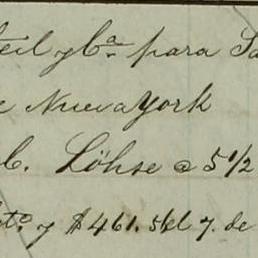 eil y Ca. para Sa
e Nueva York
C. Löhse @ 5 1/2
to. y $461.56 el 7. de